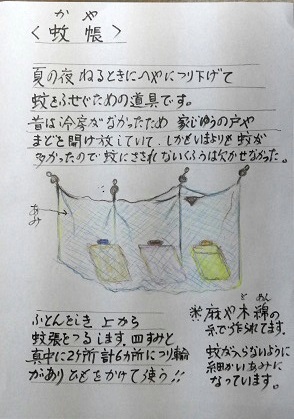 かや
〈蚊帳〉
夏の夜 ねるときにへやにつり下げて
蚊をふせぐための道具です。
昔は冷房がなかったため 家じゅうの戸や
まどを開け放していて、しかもいまよりも 蚊が
多かったので 蚊にさされないくふうは欠かせなかった。
あみ
ふとんをしき 上から
蚊張をつるします。四すみと
真中に2ヶ所 計6ヵ所につり輪
があり ひもをかけて使う!!
※麻や木綿の
もめん
糸で作られてます。
蚊が入らないように
細かいあみに
なっています。